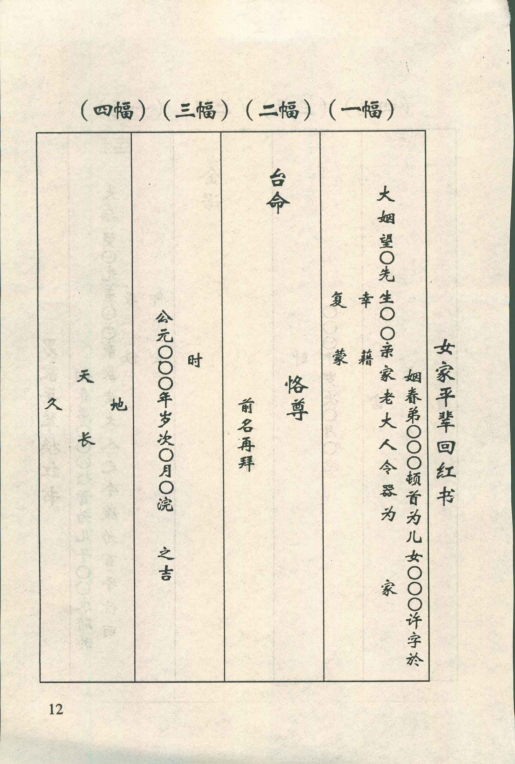 女家平辈回红书
（四幅）（三幅）（二幅）（一幅）
姻春弟〇〇〇顿首为儿女〇〇〇许字於
大姻望〇先生〇〇亲家老大人令器为 家
幸 藉
复 蒙
恪尊
台命
前名再拜
时
公元〇〇〇年岁次〇月〇浣 之吉
地
天 长
久
12